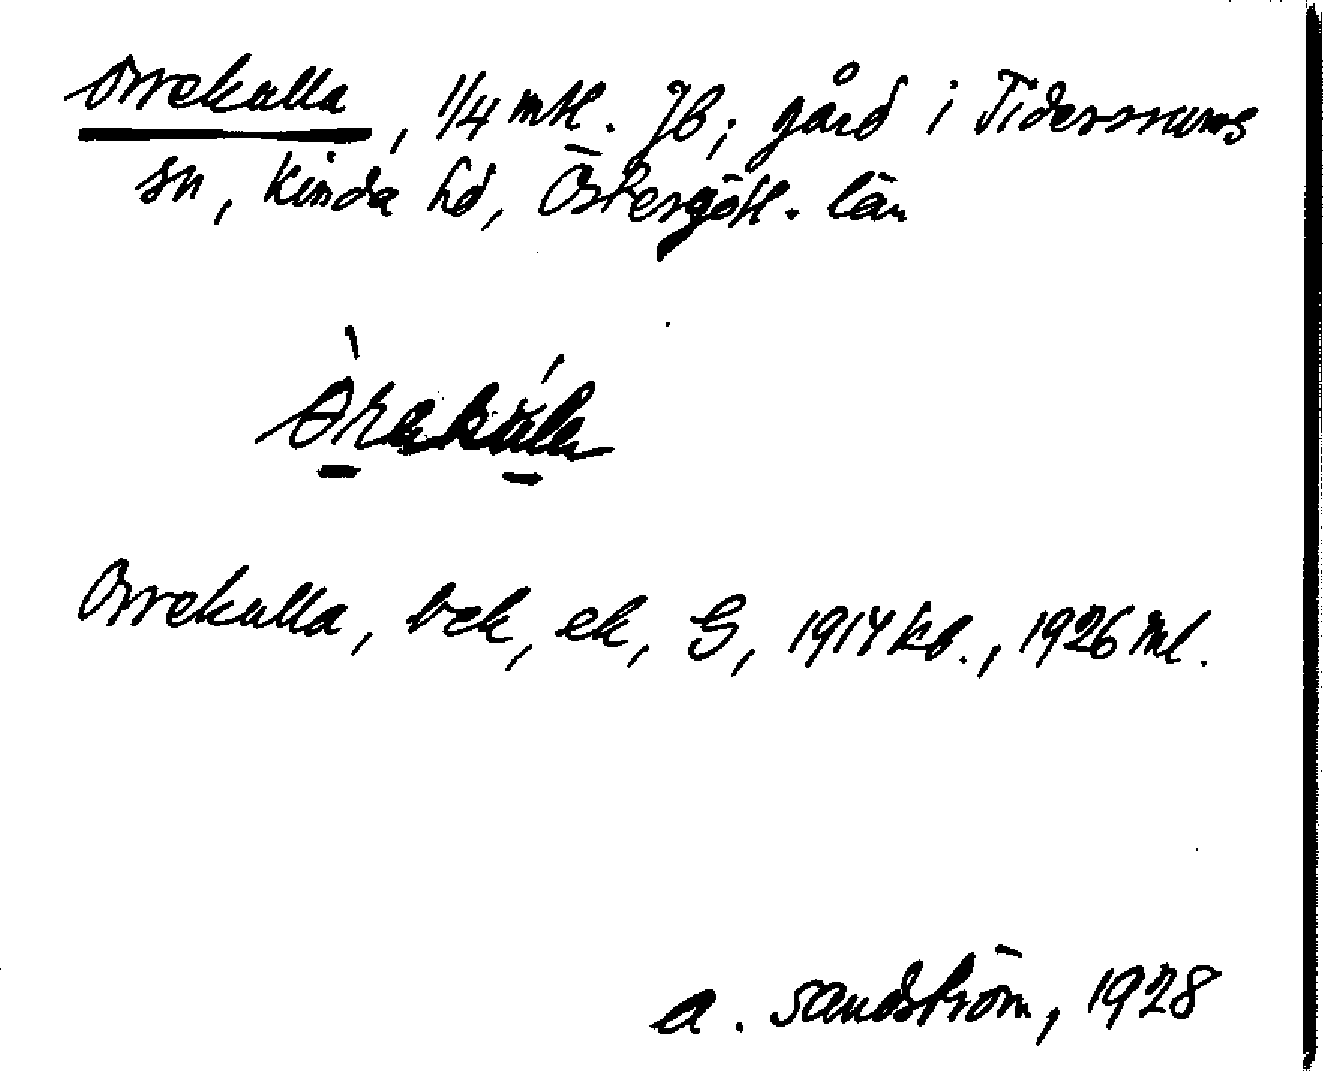 Orrekulla, 1/4 mtl. Jb; gård i Tidersrums
sn, Kinda hd, Östergötl. län
Orrekulla, bek, ek, G, 1914 kb., 1926 ml.
A. Sandström, 1928